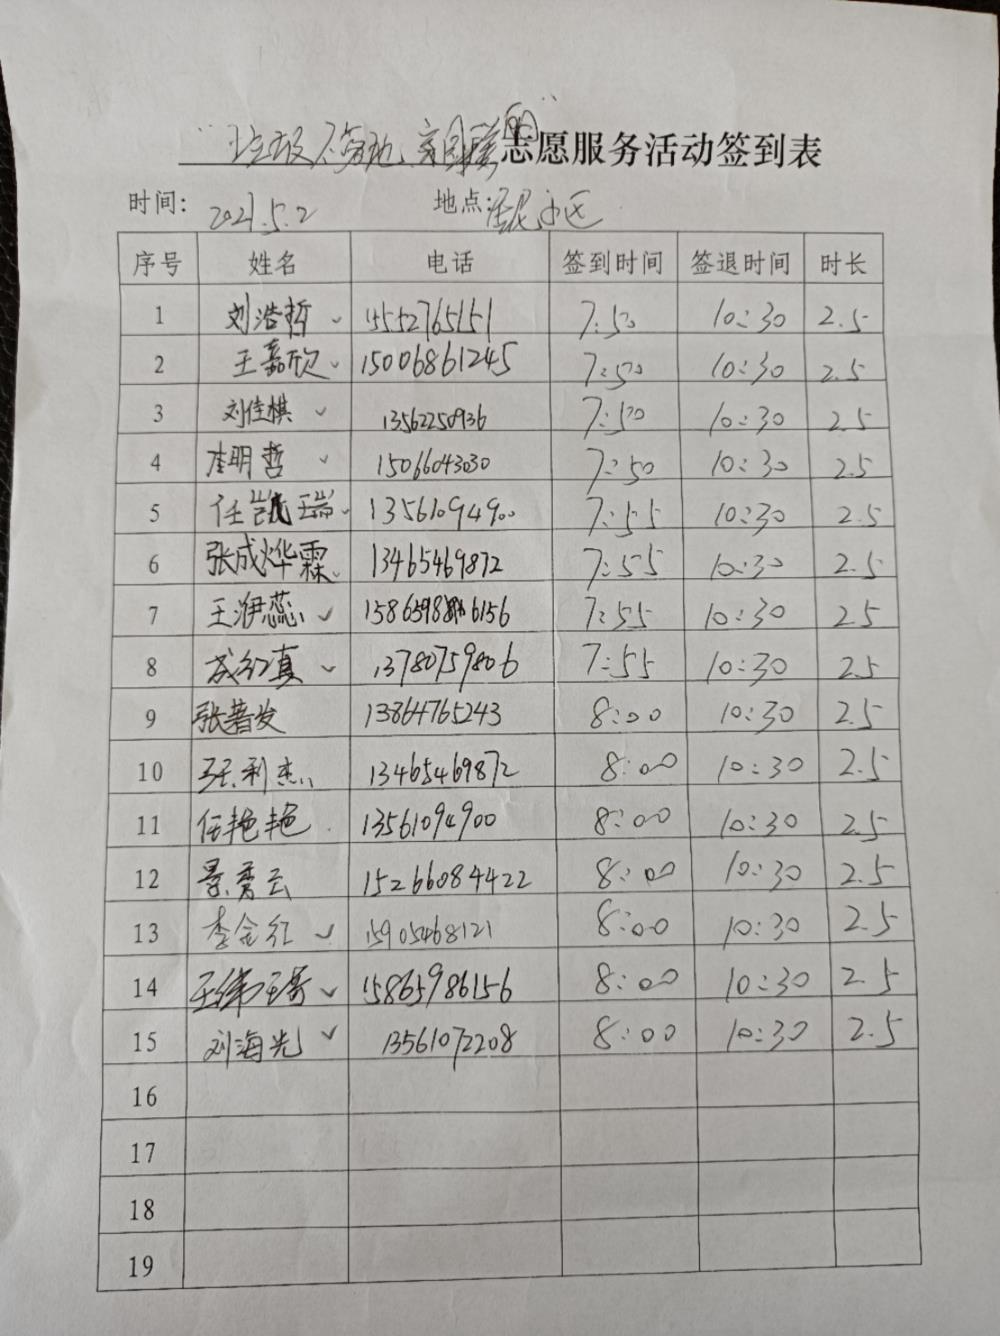 "垃圾不落地,家园更美"志愿服务活动签到表
时间: 2021.5.2 地点: 小区
序号 姓名 电话 签到时间 签退时间 时长
1 刘浩哲 ✓ 15552765151 7:50 10:30 2.5
2 王嘉欣 ✓ 15006861245 7:50 10:30 2.5
3 刘佳棋 ✓ 13562250936 7:50 10:30 2.5
4 李明哲 ✓ 15066043030 7:50 10:30 2.5
5 任凯瑞 ✓ 13561094900 7:55 10:30 2.5
6 张成烨霖 ✓ 13465469872 7:55 10:30 2.5
7 王洢蕊 ✓ 158659886156 7:55 10:30 2.5
8 真 ✓ 13780759806 7:55 10:30 2.5
9 张著发 13864765243 8:00 10:30 2.5
10 张利杰 13465469872 8:00 10:30 2.5
11 任艳艳 13561094900 8:00 10:30 2.5
12 景秀云 15266084422 8:00 10:30 2.5
13 李金红 ✓ 15905468121 8:00 10:30 2.5
14 王 ✓ 15865986156 8:00 10:30 2.5
15 刘海光 ✓ 13561072208 8:00 10:30 2.5
16
17
18
19